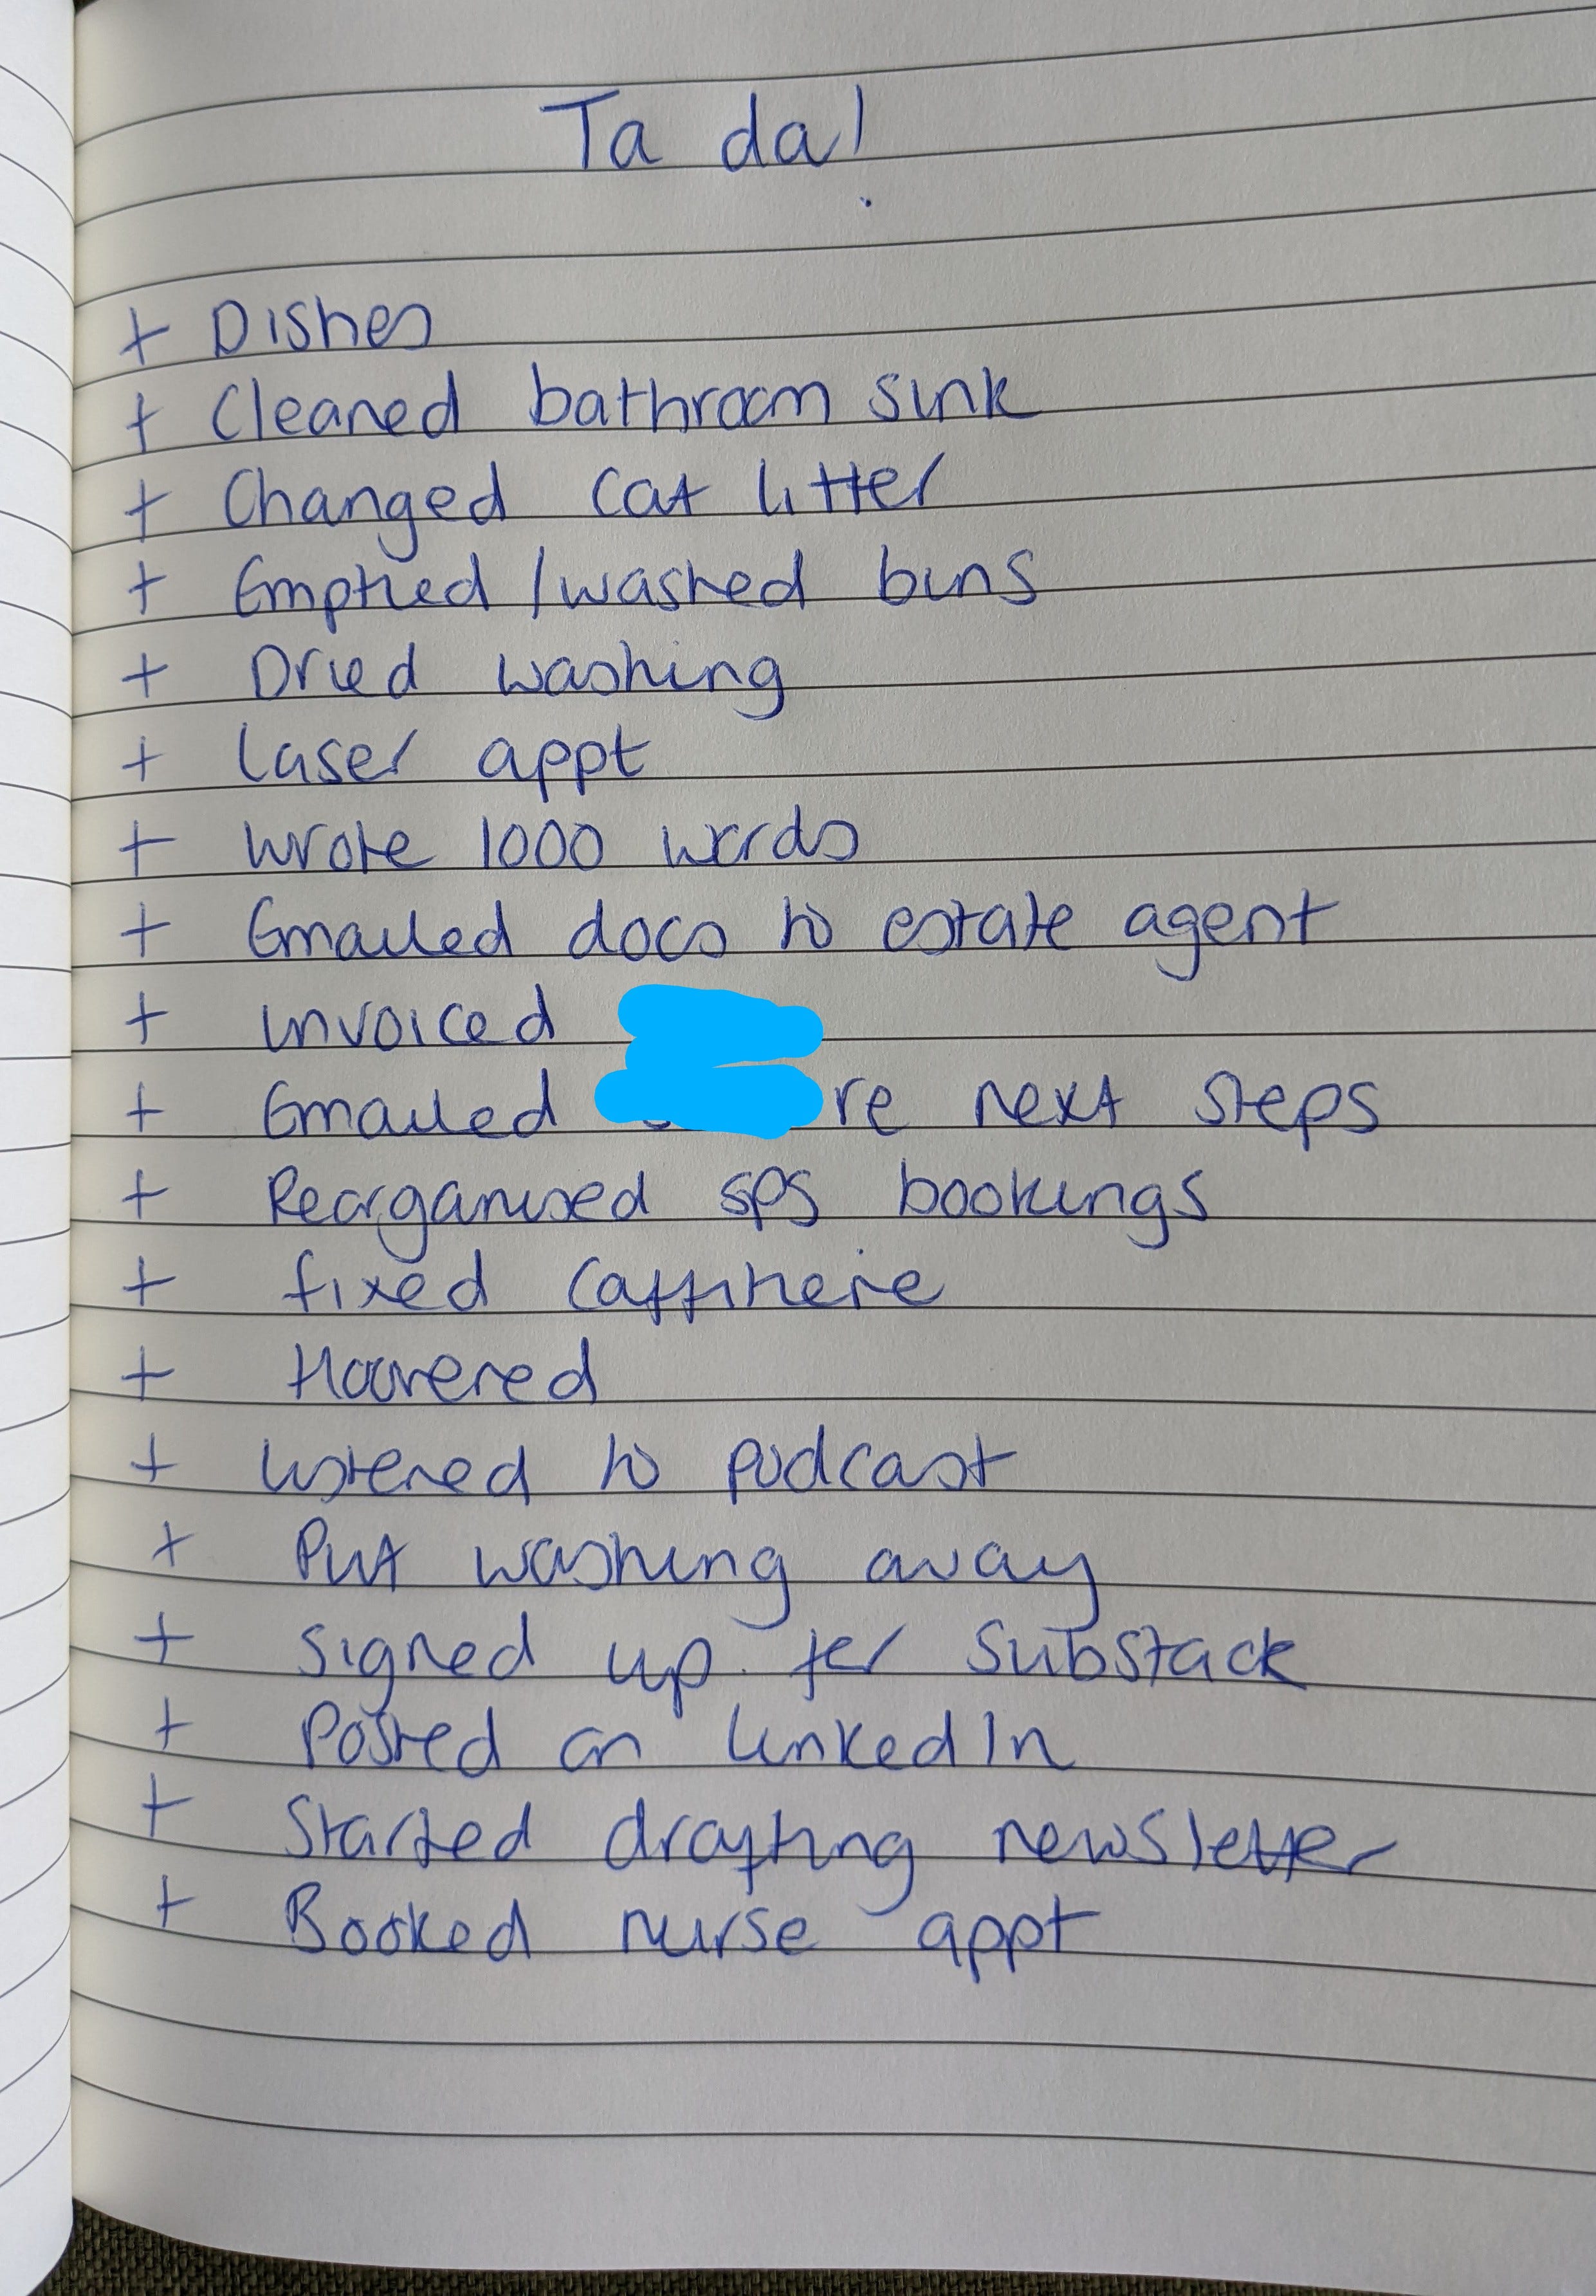 Ta da!
+ Dishes
+ Cleaned bathroom sink
+ Changed cat litter
+ Emptied / washed bins
+ Dried washing
+ Laser appt
+ Wrote 1000 words
+ Emailed docs to estate agent
+ Invoiced
+ Emailed re next steps
+ Rearganised sps bookings
+ fixed
+ Hoovered
+ Listened to podcast
+ Put washing away
+ Signed up for Substack
+ Posted on LinkedIn
+ Started drafting newsletter
+ Booked nurse appt